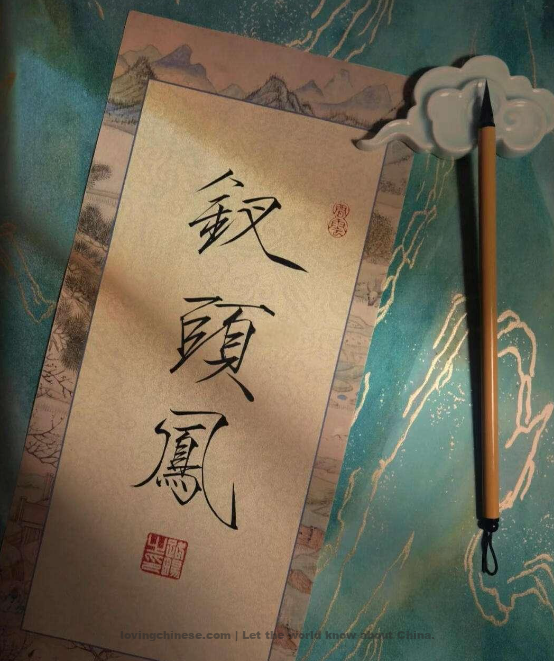 釵頭鳳
lovingchinese.com | Let the world know about China.